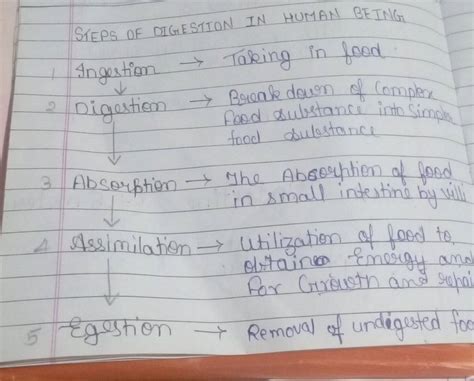 STEPS OF DIGESTION IN HUMAN BEING
1 Ingestion → Taking in food
2 Digestion → Breakdown of Complex
food substance into Simple
food substance
3 Absorption → The Absorption of food
in small intestine by villi
4 Assimilation → Utilization of food to
obtain Energy and
For Growth and repair
5 Egestion → Removal of undigested foo